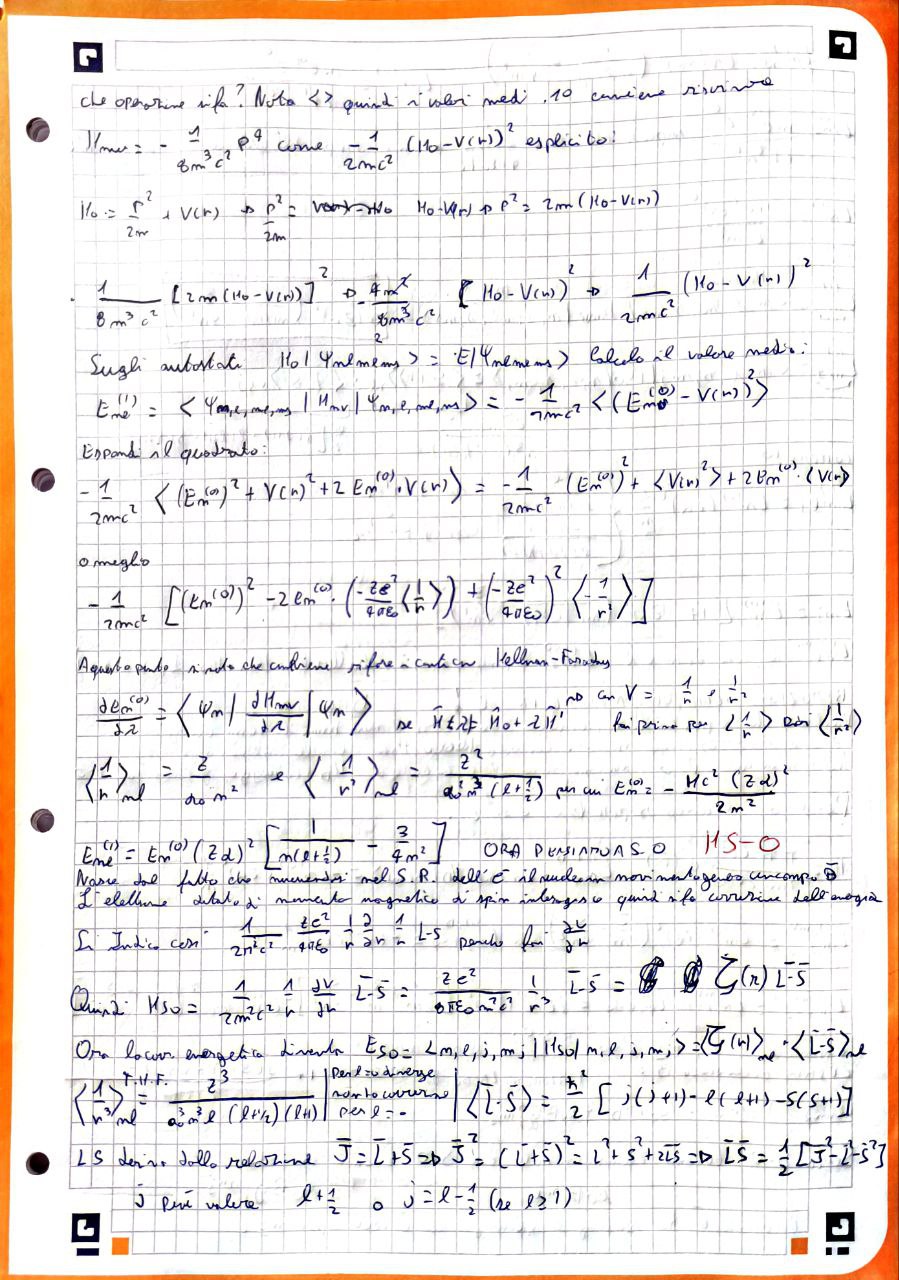 che operazione si fa? Nota <> quindi i valori medi. 1° conviene riscrivere
Hmv = - 1/8m³c² p⁴ come - 1/2mc² (H₀-V(r))² esplicito:
H₀ = p²/2m + V(r) => p²/2m = H₀-V(r) => p² = 2m (H₀-V(r))
- 1/8m³c² [2m(H₀-V(r))]² => - 4m²/8m³c² [H₀-V(r))² => 1/2mc² (H₀-V(r))²
Sugli autostati H₀|Ψnlmems> = E|Ψnlmems> Calcolo il valore medio:
Enl⁽¹⁾ = <Ψn,l,me,ms | Hmv | Ψn,l,me,ms> = - 1/2mc² <(En⁽⁰⁾ - V(r))²>
Espandi il quadrato:
- 1/2mc² <(En⁽⁰⁾)² + V(r)² + 2En⁽⁰⁾·V(r)> = - 1/2mc² (En⁽⁰⁾)² + <V(r)²> + 2En⁽⁰⁾·<V(r)
o meglio
- 1/2mc² [(En⁽⁰⁾)² - 2En⁽⁰⁾·(-Ze²/4πε₀ <1/r>) + (-Ze²/4πε₀)² <-1/r²>]
A questo punto si nota che conviene rifare i conti con Hellman-
∂En⁽⁰⁾/∂λ = <Ψn| ∂Hmv/∂λ |Ψn> se H₀ + λH' => con V = 1/r e 1/r²
fai prima per <1/r> poi <1/r²>
<1/r>nl = Z/a₀n² e <1/r²>nl = Z²/a₀²n³(l+1/2) per cui En⁽⁰⁾ = - Mc²(Zα)²/2n²
Enl⁽¹⁾ = En⁽⁰⁾(Zα)² [1/n(l+1/2) - 3/4n²] ORA PENSIAMO A S-O HS-O
Nasce dal fatto che muovendosi nel S.R. dell'e⁻ il nucleo in movimento genera un campo B
L'elettrone dotato di momento magnetico di spin interagisce quindi si fa correzione dell'energia
Si Indica così 1/2m²c² Ze²/4πε₀ 1/r ∂/∂r 1/r L-S perché fai ∂V/∂r
Quindi HSO = 1/2m²c² 1/r ∂V/∂r L-S = Ze²/8πε₀m²c² 1/r³ L-S = ζ(r) L-S
Ora la corr energetica diventa ESO = <n,l,j,mj|HSO|n,l,j,mj> = <ζ(r)>nl·<L-S>nl
<1/r³>nl F.H.F. = Z³/a₀³n³l(l+1/2)(l+1) | Per l=0 diverge non ho correzione per l=0 | <L-S> = ħ²/2 [j(j+1)-l(l+1)-s(s+1)]
LS deriva dalla relazione J = L+S => J² = (L+S)² = L²+S²+2LS => LS = 1/2[J²-L²-S²]
j può valere l+1/2 o j=l-1/2 (se l≥1)